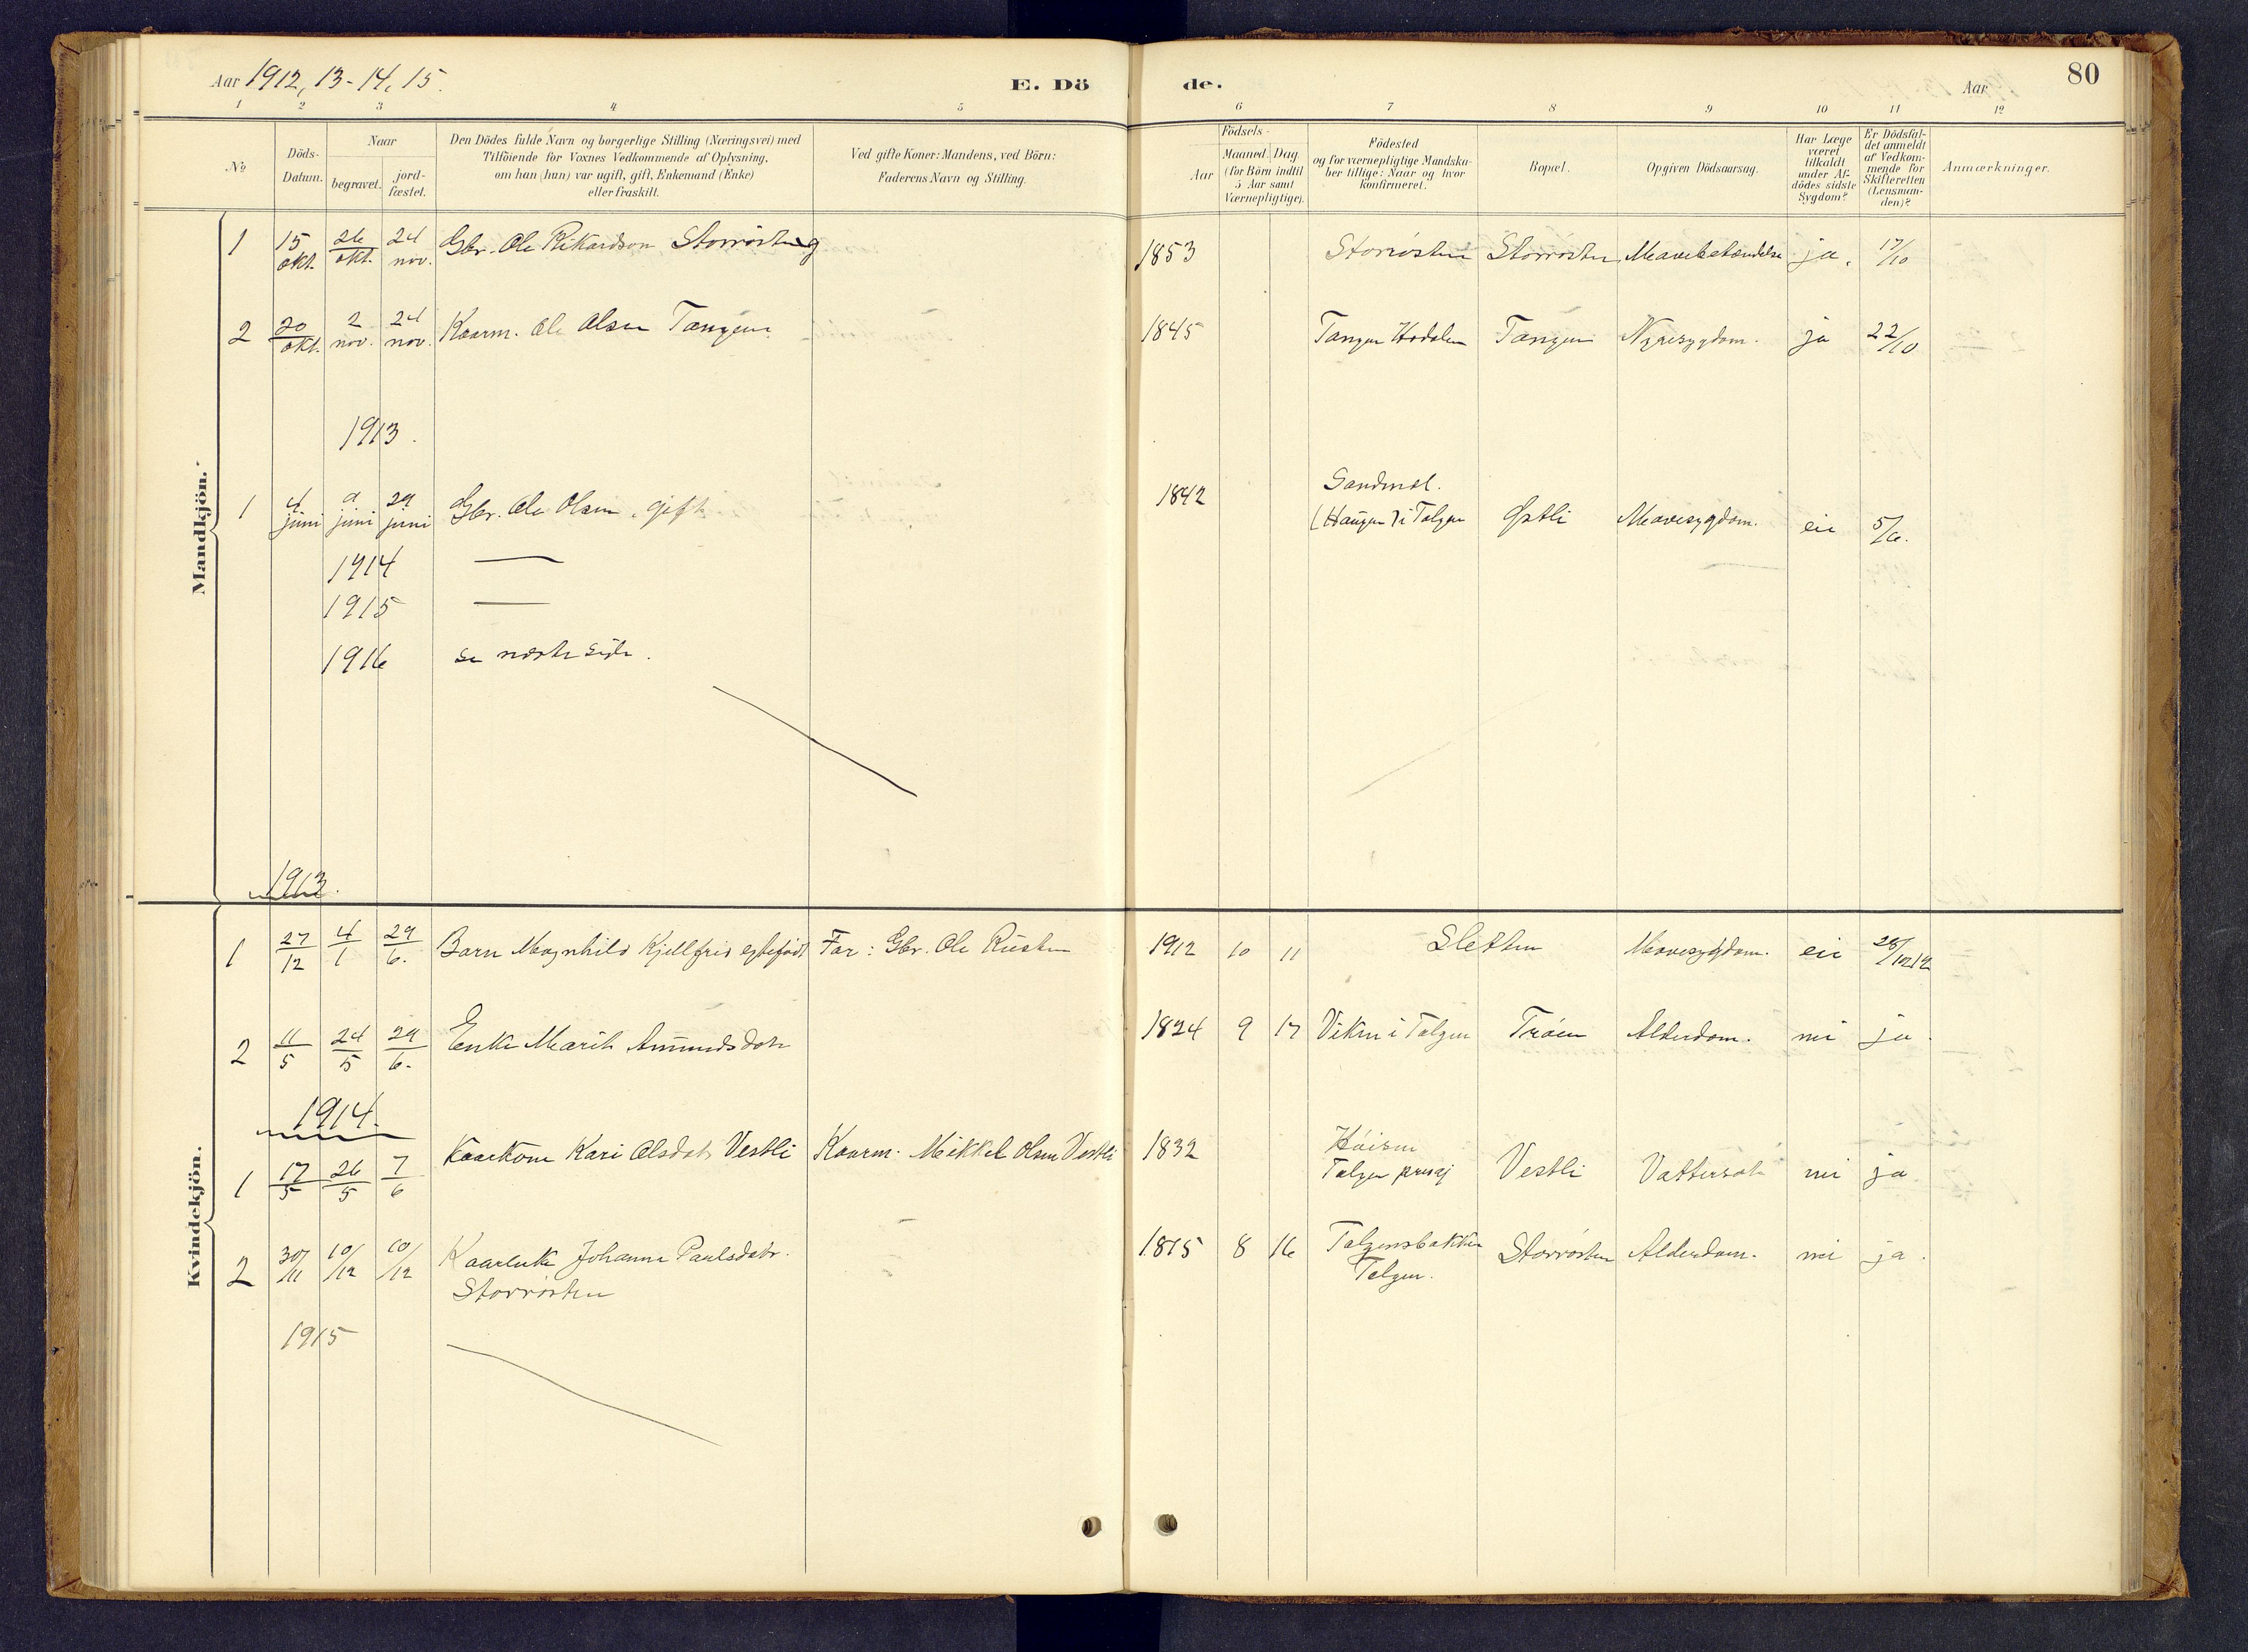 Aar 1912, 13-14, 15.
E. Dö de.
Aar
80
1 2 3 4 5 6 7 8 9 10 11 12
No
Döds-Datum.
Naar
begravet.
jord-fæstet.
Den Dödes fulde Navn og borgerlige Stilling (Næringsvei) med
Tilföiende for Voxnes Vedkommende af Oplysning,
om han (hun) var ugift, gift, Enkemand (Enke)
eller fraskilt.
Ved gifte Koner: Mandens, ved Börn:
Faderens Navn og Stilling.
Födsels-
Aar
Maaned. Dag.
(for Börn indtil
5 Aar samt
Værnepligtige).
Födested
og for værnepligtige Mandska-
ber tillige: Naar og hvor
konfirmeret.
Bopæl.
Opgiven Dödsaarsag.
Har Læge
været
tilkaldt
under Af-
dödes sidste
Sygdom?
Er Dödsfal-
det anmeldt
af Vedkom-
mende for
Skifteretten
(Lensman-
den)?
Anmærkninger.
Mandkjön.
1 15 okt. 26 okt. 24 nov. Gbr. Ole Rikardson Storrösten 1853 Storrösten Storrösten Mavebetændelse ja. 17/10
2 20 okt. 2 nov. 24 nov. Kaarm. Ole Olsen Tangen 1845 Tangen Hodalen Tangen Nyresygdom. ja 22/10
1913.
1 4 juni 9 juni 29 juni Gbr. Ole Olsen, gift 1842 Sandmæl. (Haugen) i Tolgen Østli Mavesygdom. ei 5/6.
1914 —
1915 —
1916 se næste side.
1913.
Kvindekjön.
1 27/12 4/1 29/6. Barn Magnhild Kjellfrid egtefödt Far: Gbr. Ole Rusten 1912 10 11 Sletten Mavesygdom. ei 28/12 12
2 11/5 24/5 29/6. Enke Marit Amundsdatr 1824 9 17 Viken i Tolgen Tröen Alderdom. nei ja.
1914.
1 17/5 26/5 7/6 Kaarkone Kari Olsdatr Vestli Kaarm. Mikkel Olsen Vestli 1832 Tolgen præstgj Vestli Vattersot nei ja
2 30/11 10/12 10/12 Kaarenke Johanne Paulsdatr. 1815 8 16 Tolgensbakken Storrösten Alderdom. nei ja.
Storrösten Tolgen.
1915